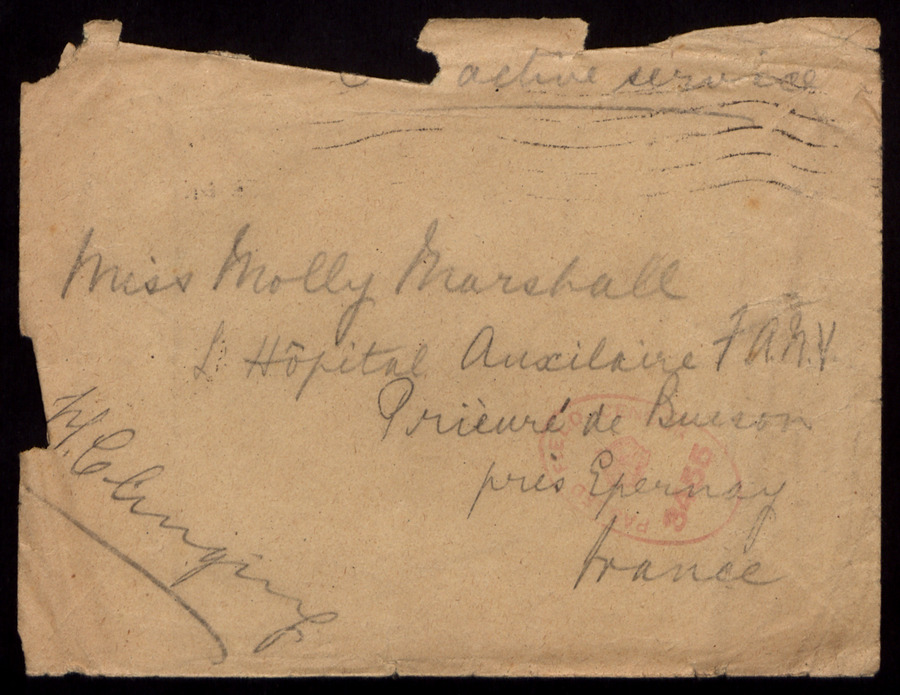 active service
Miss Molly Marshall
L'Hôpital Auxilaire F.A.N.Y
Prieuré de Buisson
près Epernay
France
3455